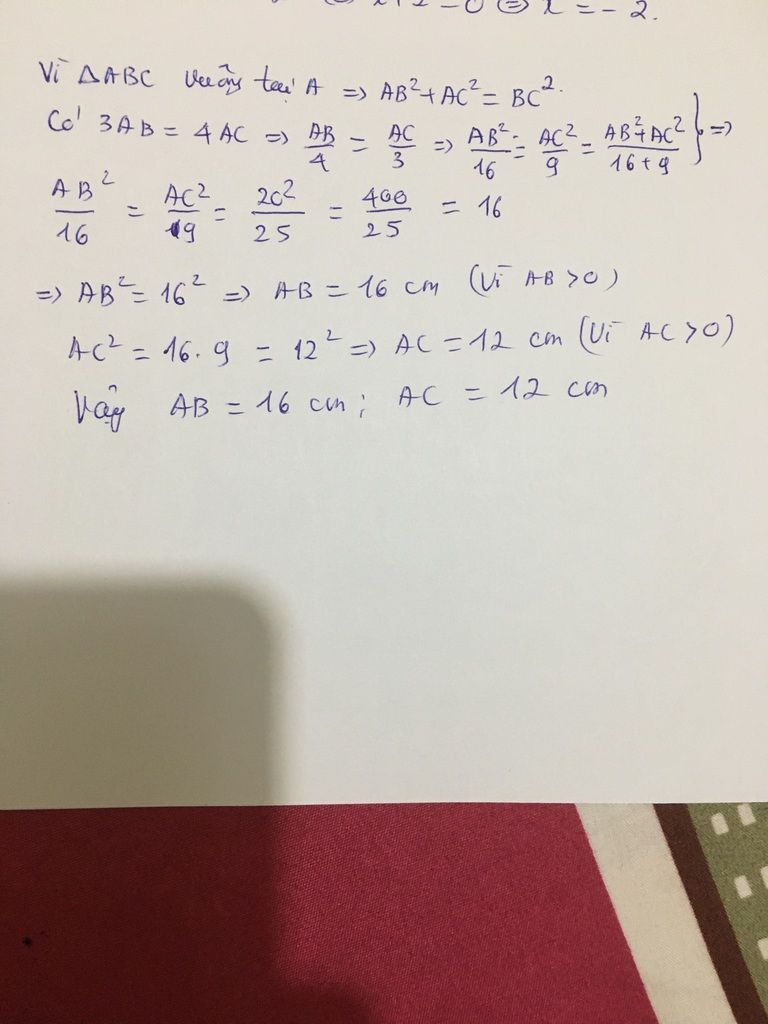 ⇔ x + 2 = 0 ⇔ x = -2.
Vì ΔABC vuông tại A => AB² + AC² = BC².
Có 3AB = 4AC => AB/4 = AC/3 => AB²/16 = AC²/9 = (AB² + AC²)/(16 + 9) } =>
AB²/16 = AC²/9 = 20²/25 = 400/25 = 16
=> AB² = 16² => AB = 16 cm (Vì AB > 0)
AC² = 16.9 = 12² => AC = 12 cm (Vì AC > 0)
Vậy AB = 16 cm ; AC = 12 cm